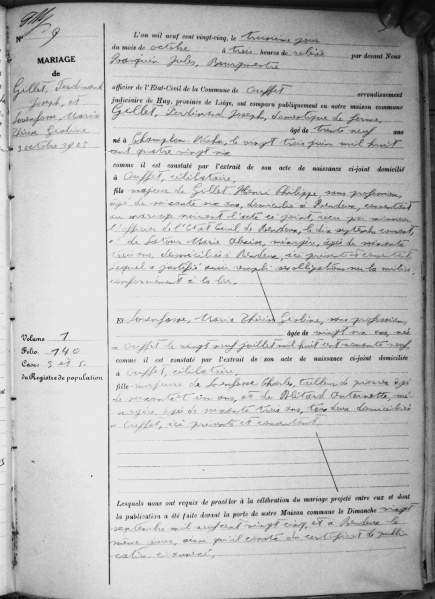 N° 9
MARIAGE
de
Gillet, Ferdinand
Joseph, et
Maria
3 octobre 1925
L'an mil neuf cent vingt-cinq, le troisième jour
du mois de octobre à trois heures de relevée par devant Nous
Jules, Bourgmestre
officier de l'Etat-Civil de la Commune de Ouffet arrondissement
judiciaire de Huy, province de Liége, ont comparu publiquement en notre maison commune
Gillet, Ferdinand Joseph, domestique de ferme,
âgé de trente neuf ans
né à le vingt trois juin mil huit
cent quatre vingt six
comme il est constaté par l'extrait de son acte de naissance ci-joint domicilié
à Ouffet, célibataire,
fils majeur de Gillet Henri Philippe, sans profession,
âgé de ans, domicilié à Rendeux, consentant
au mariage suivant l'acte ci joint, reçu par
l'officier de l'Etat Civil de Rendeux, le dix septembre courant,
Marie ménagère, âgée de soixante
ans, domiciliée à Rendeux, ici présente et consentante
lequel a justifié avoir rempli ses obligations sur la milice
conformément à la loi,
Et Maria sans profession,
âgée de vingt six ans, née
à Ouffet le vingt neuf juillet mil huit cent nonante neuf,
comme il est constaté par l'extrait de son acte de naissance ci-joint domiciliée
à Ouffet, célibataire,
fille majeure de Charles, tailleur de pierres âgé
de soixante et un ans, et de Antoinette, mé-
nagère, âgée de soixante trois ans, tous deux domiciliés
à Ouffet, ici présents et consentant
Volume 1
Folio 140
Cases 3 et 5.
du Registre de population
Lesquels nous ont requis de procéder à la célébration du mariage projeté entre eux et dont
la publication a été faite devant la porte de notre Maison commune le Dimanche vingt
septembre mil neuf cent vingt cinq, et à Rendeux le
même jour, ainsi qu'il conste du certificat de publi-
cation ci annexé,